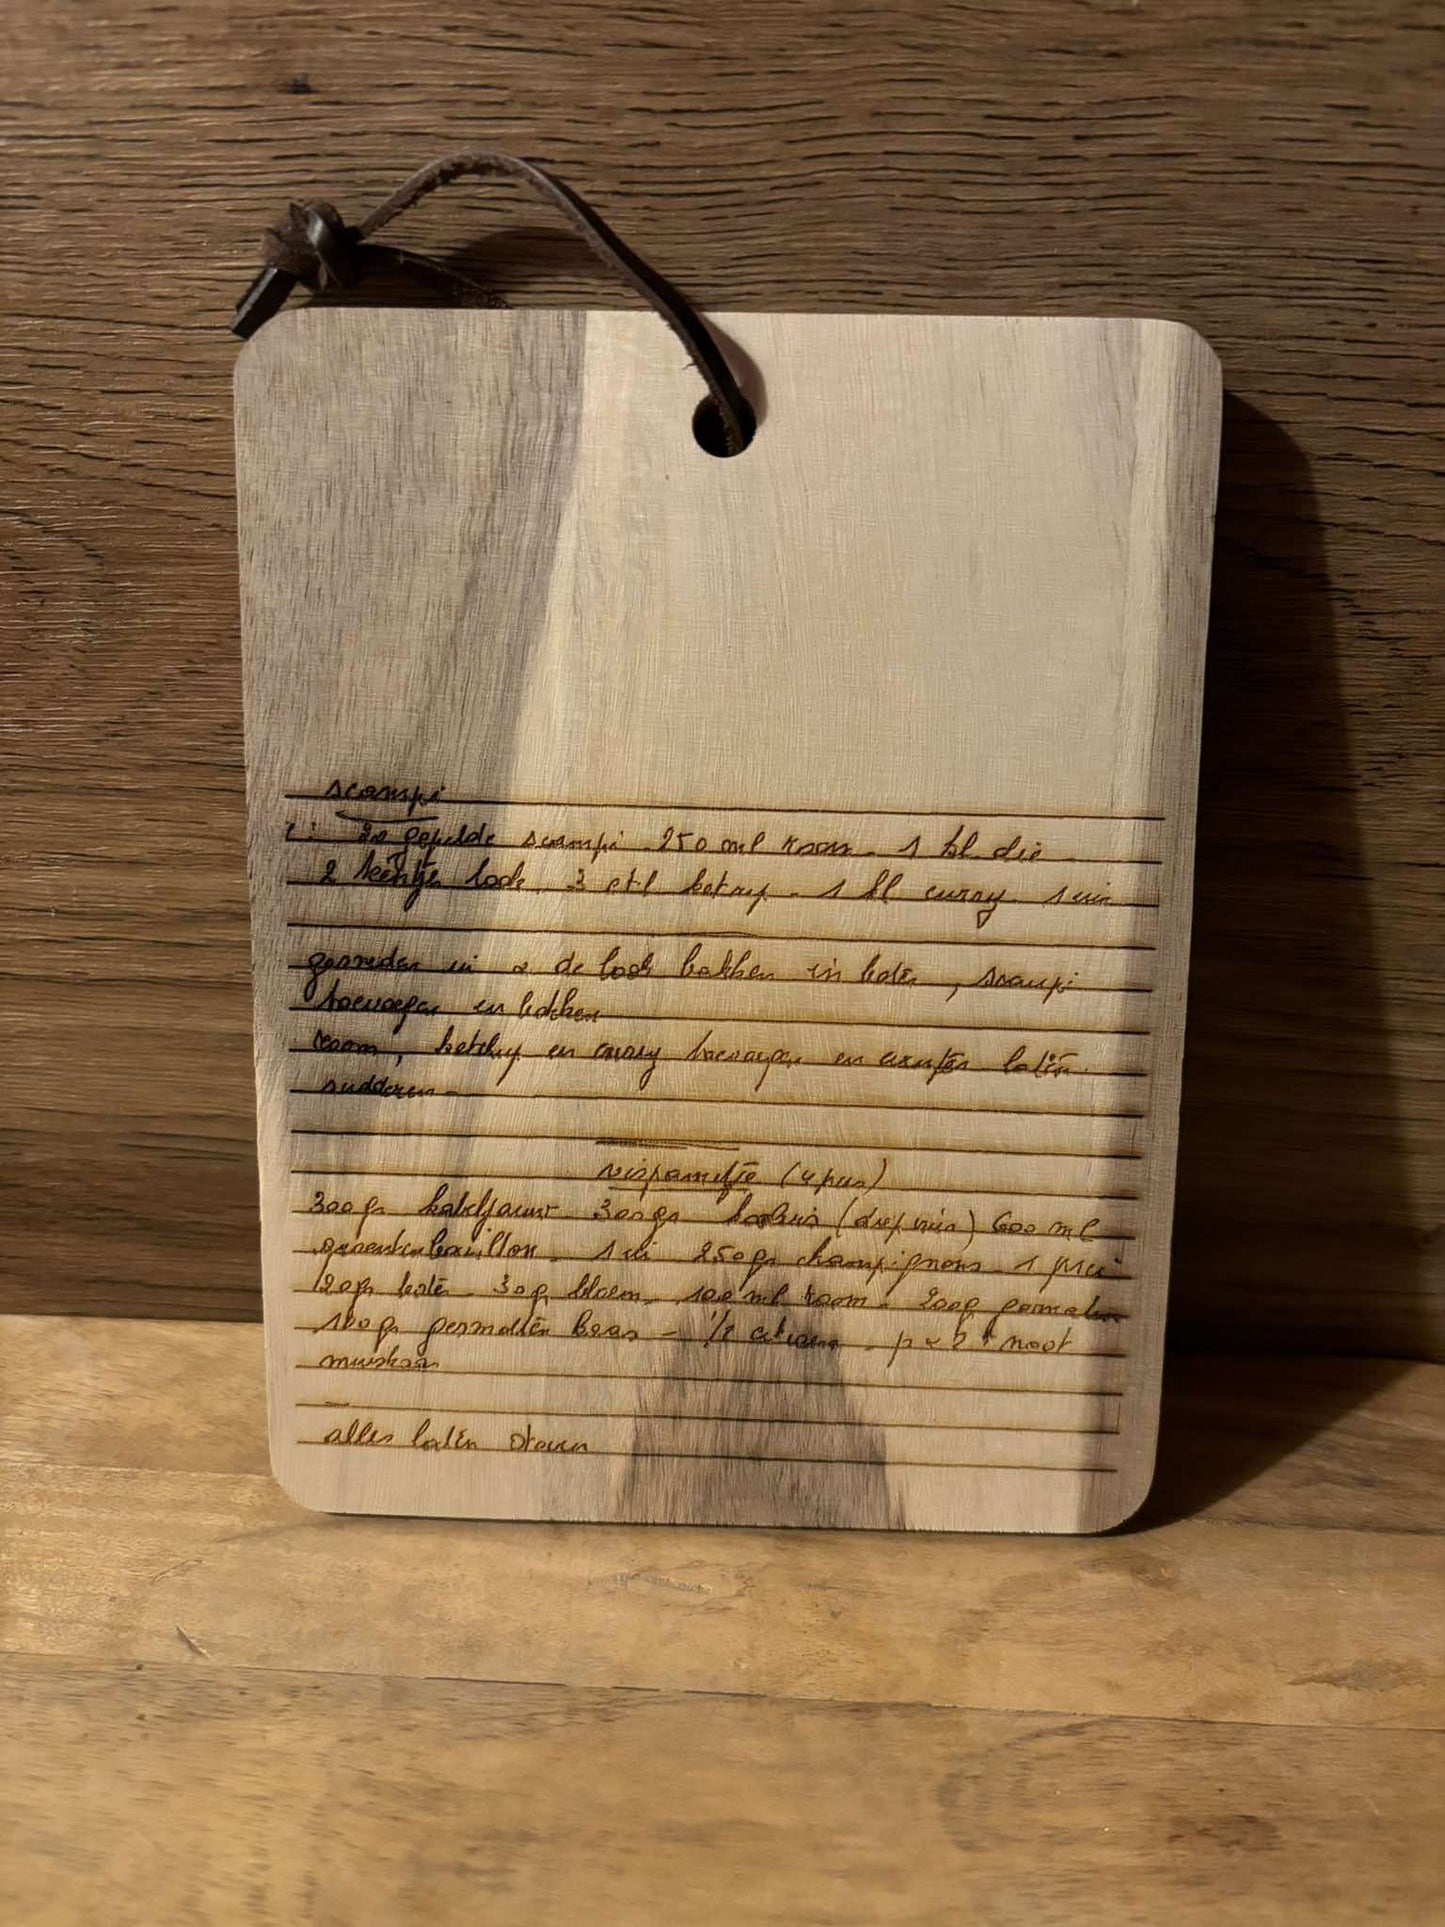 scampi
20 gepelde scampi - 250 ml room - 1 bl
2 teentjes look, 3 etl - 1 kl curry - 1 ui
de look bakken in boter, scampi
toevoegen en bakken
room, ketchup en curry toevoegen en eventjes laten
sudderen -
vispannetje (4 pers)
300 gr kabeljauw - 300 gr (diepvries) 600 ml
groentenbouillon - 1 ui 250 gr champignons - 1 prei
120 gr boter - 30 g bloem - 100 ml room - 200 g
100 gr gemalen kaas - 1/2 citroen - p + noot
muskaat
alles laten stoven